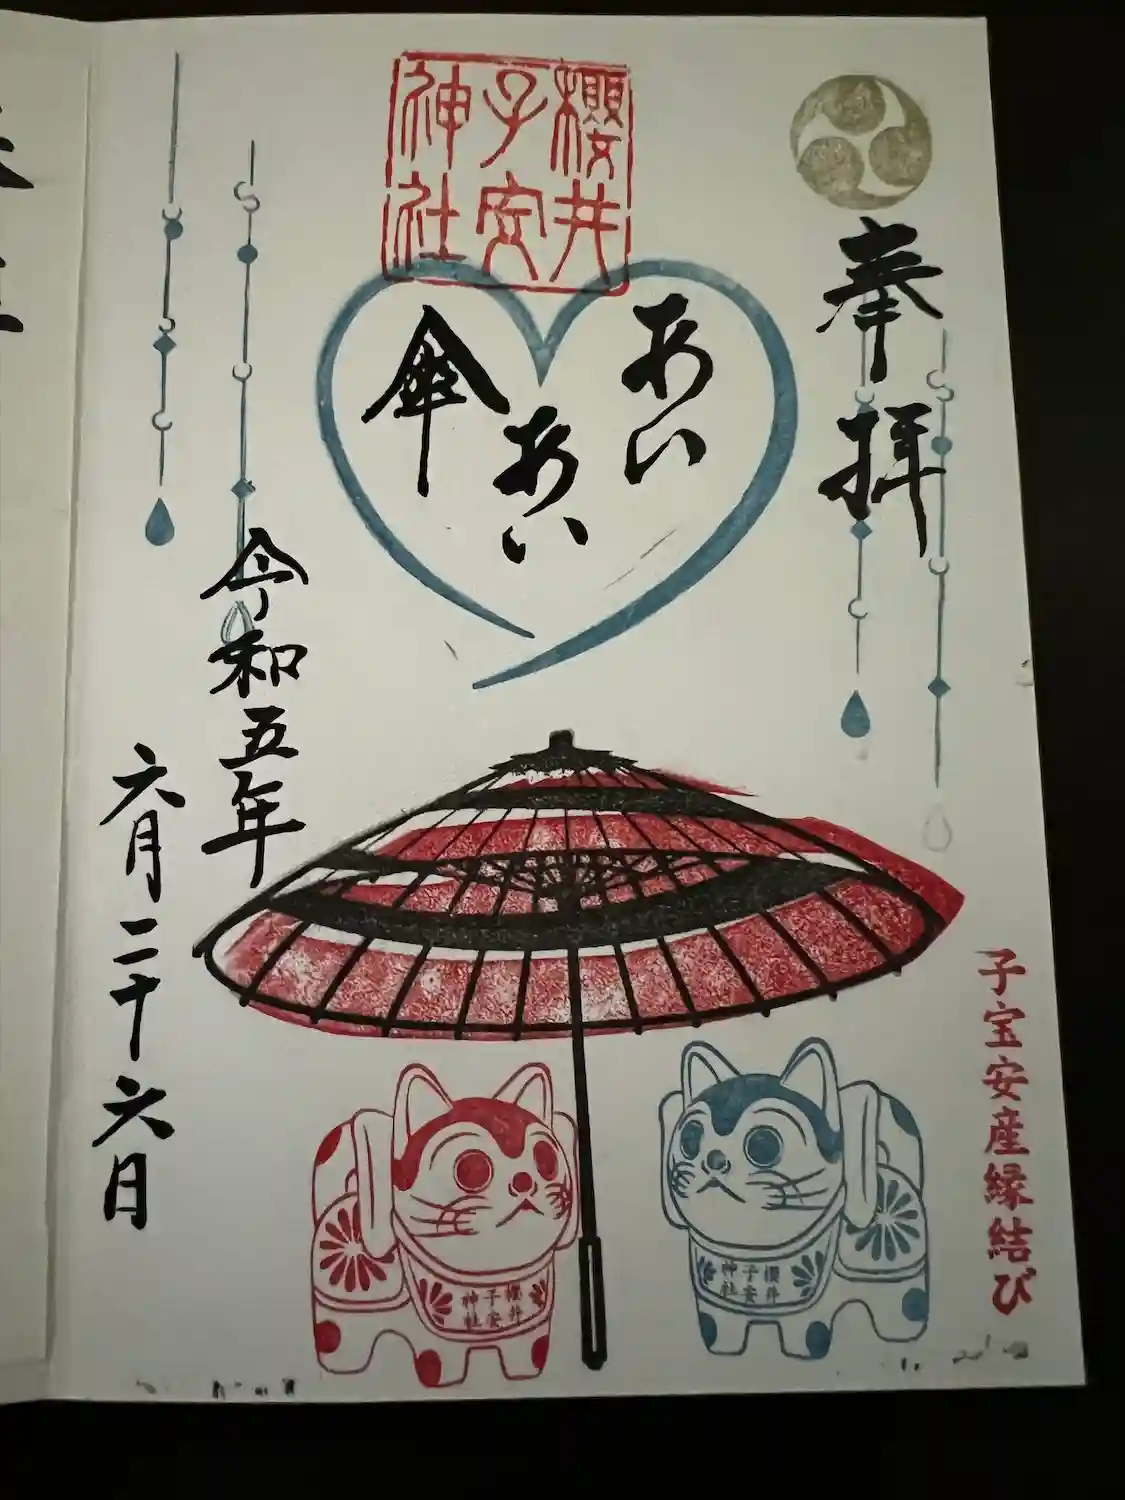 奉拝
櫻井
子安
神社
あい
あい
傘
令和五年
六月二十六日
子宝安産縁結び
櫻井
子安
神社
櫻井
子安
神社